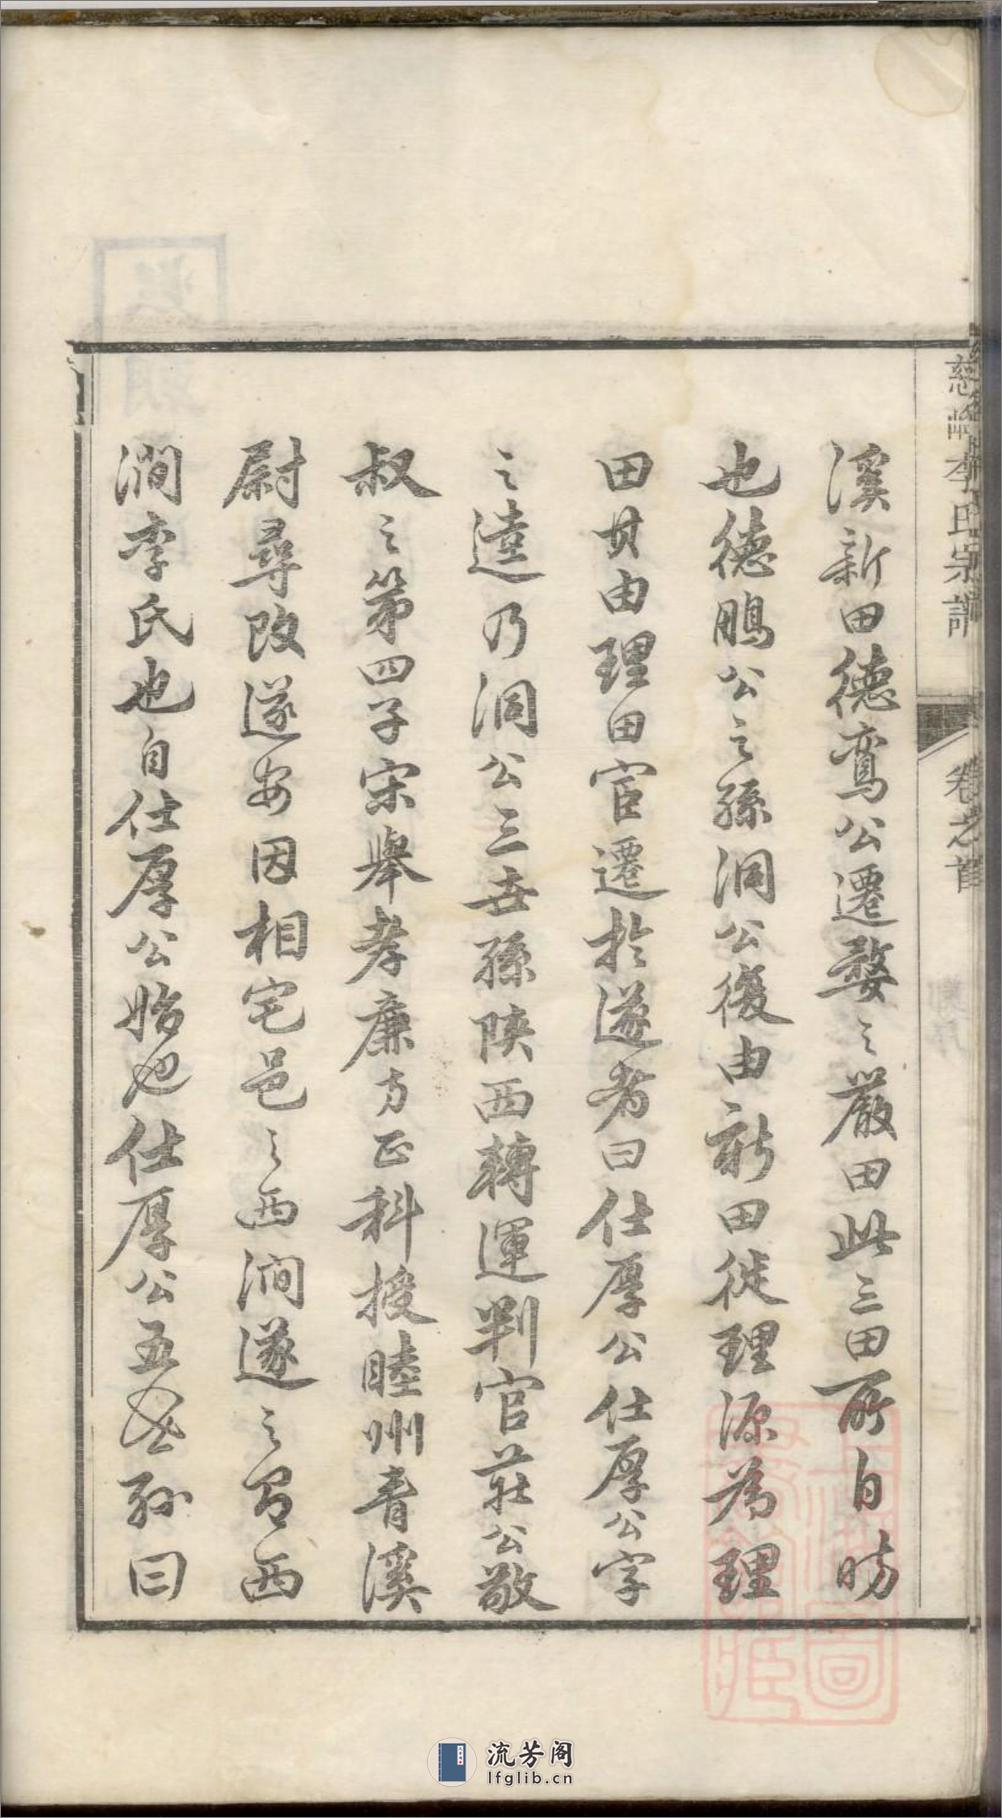 李氏宗譜 卷之首
溪新田德鸞公遷婺之嚴田此三田所自昉
也德鵬公之孫洞公復由新田徙理源為理
田其由理田官遷於遂者曰仕厚公仕厚公字
之逵乃洞公三世孫陝西轉運判官莊公敬
叔之第四子宋舉孝廉方正科授睦州青溪
尉尋改遂安因相宅邑之西澗遂之有西
澗李氏也自仕厚公始也仕厚公五世孫曰
流芳阁
lfglib.cn